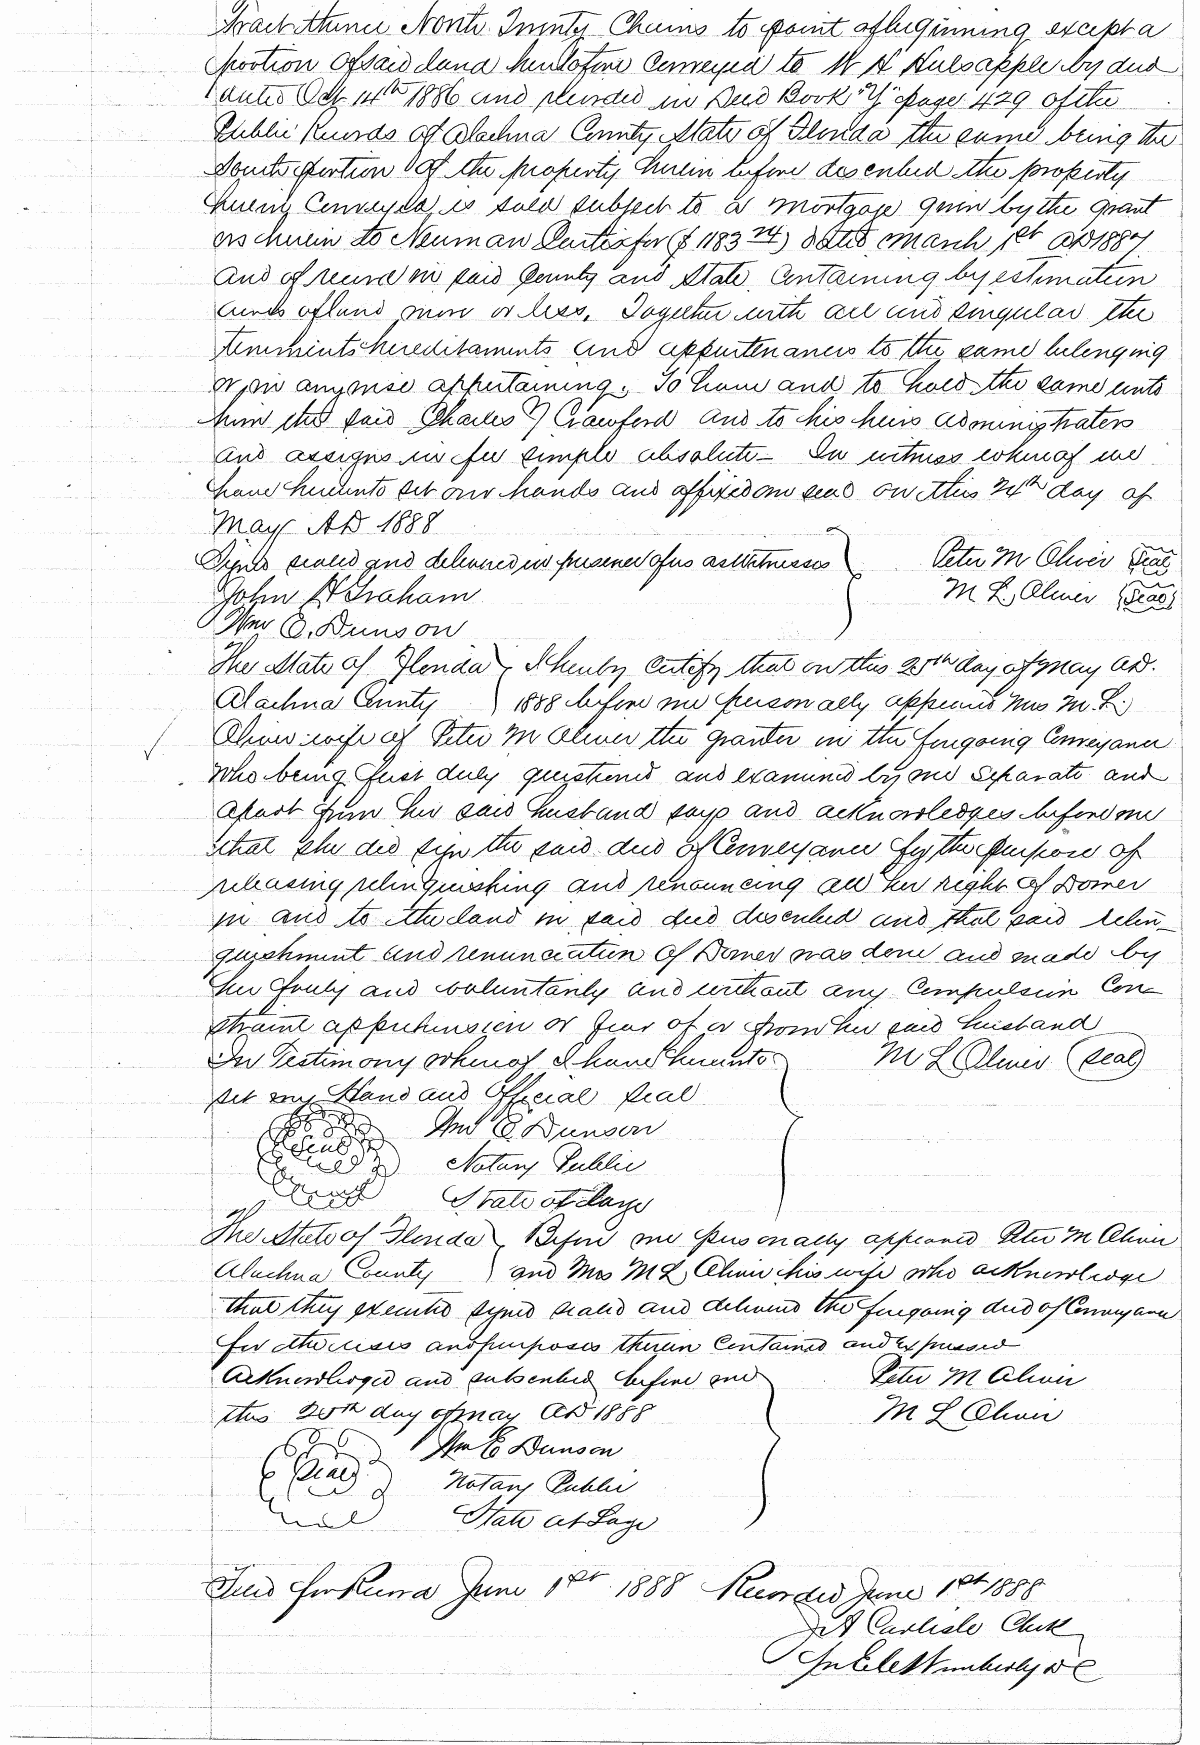 Tract thence North Twenty Chains to point of beginning except a
portion of said land heretofore Conveyed to W H Hulsapple by deed
dated Oct 14th 1886 and recorded in Deed Book "Y" page 429 of the
Public Records of Alachua County State of Florida the same being the
South portion of the property herein before described the property
herein Conveyed is sold subject to a mortgage given by the grant
ors herein to Neuman Curtis for ($1183 24) dated March 1st AD 1887
and of record in said County and State Containing by estimation
acres of land more or less, Together with all and singular the
tenements hereditaments and appurtenances to the same belonging
or in anywise appertaining. To have and to hold the same unto
him the said Charles Crawford and to his heirs administrators
and assigns in fee simple absolute — In witness whereof we
have hereunto set our hands and affixed our seal on this 24th day of
May AD 1888
Signed sealed and delivered in presence of us as Witnesses Peter M Oliver Seal
John H Graham M L Oliver Seal
Wm E. Dunson
The State of Florida I hereby Certify that on this 25th day of May AD.
Alachua County 1888 before me personally appeared Mrs M. L.
Oliver wife of Peter M Oliver the grantor in the foregoing Conveyance
who being first duly questioned and examined by me separate and
apart from her said husband says and acknowledges before me
that she did sign the said deed of Conveyance for the purpose of
releasing relinquishing and renouncing all her right of Dower
in and to the land in said deed described and that said relin-
quishment and renunciation of Dower was done and made by
her freely and voluntarily and without any Compulsion Con-
straint apprehension or fear of or from her said husband
In Testimony whereof I have hereunto M L Oliver Seal
set my Hand and Official Seal
Wm E Dunson
Seal Notary Public
State at Large
The State of Florida Before me personally appeared Peter M Oliver
Alachua County and Mrs M L Oliver his wife who acknowledge
that they executed signed sealed and delivered the foregoing deed of Conveyance
for the uses and purposes therein Contained and expressed
Acknowledged and subscribed before me Peter M Oliver
this 25th day of May AD 1888 M L Oliver
Wm E Dunson
Seal Notary Public
State at Large
Filed for Record June 1st 1888 Recorded June 1st 1888
J A Carlisle Clerk
Wimberly DC